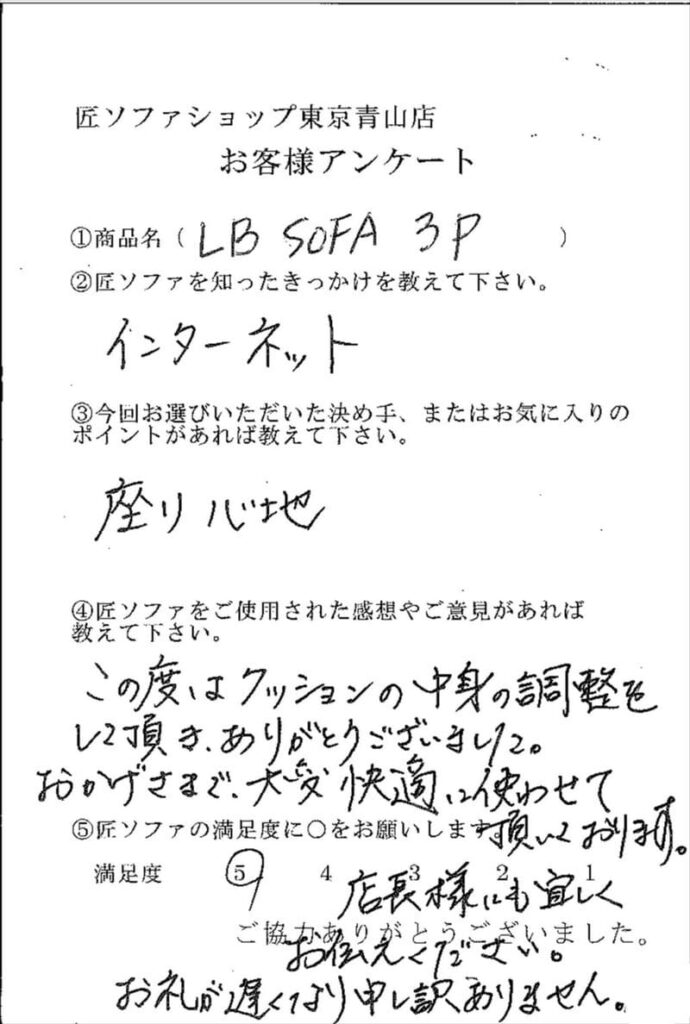 匠ソファショップ東京青山店
お客様アンケート
①商品名（ LB SOFA 3P ）
②匠ソファを知ったきっかけを教えて下さい。
インターネット
③今回お選びいただいた決め手、またはお気に入りの
ポイントがあれば教えて下さい。
座り心地
④匠ソファをご使用された感想やご意見があれば
教えて下さい。
この度はクッションの中身の調整を
して頂き、ありがとうございました。
おかげさまで、大変快適に使わせて
頂いております。
⑤匠ソファの満足度に○をお願いします。
満足度 5 4 3 2 1
店長様にも宜しく
ご協力ありがとうございました。
お伝えください。
お礼が遅くなり申し訳ありません。